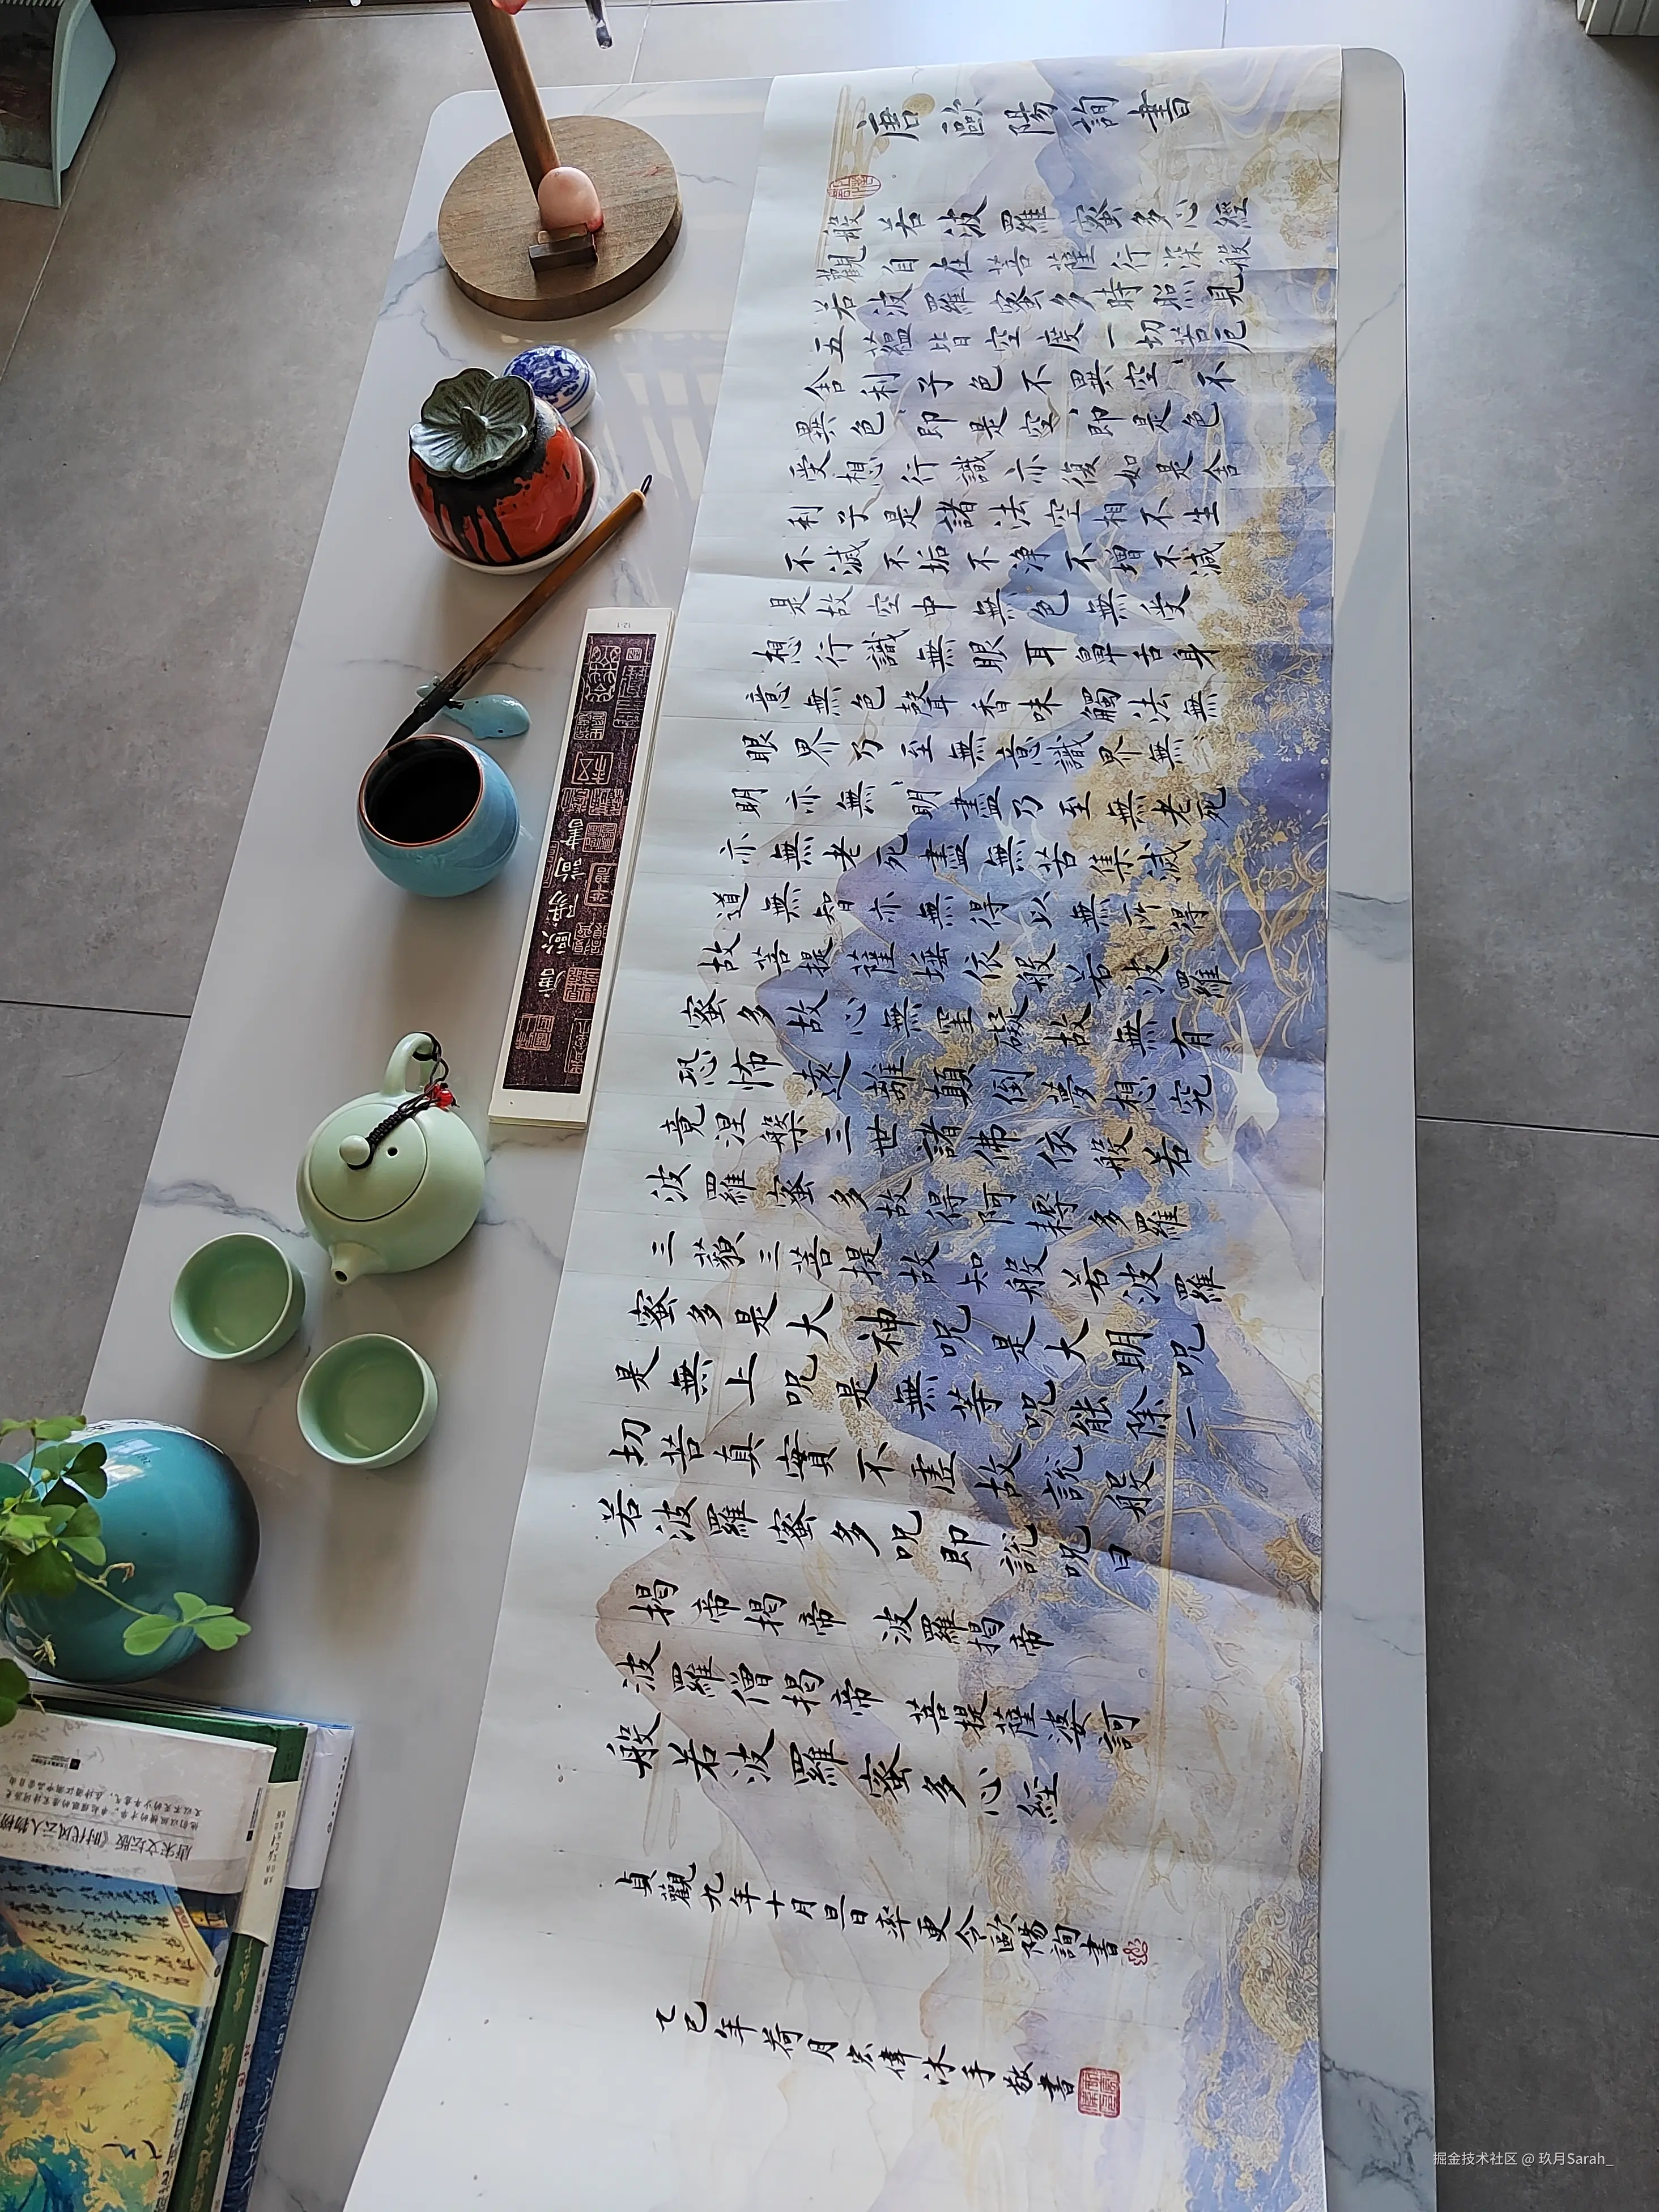 唐歐陽詢書
般若波羅蜜多心經
觀自在菩薩行深般
若波羅蜜多時照見
五蘊皆空度一切苦厄
舍利子色不異空〻不
異色〻即是空〻即是色
受想行識亦復如是舍
利子是諸法空相不生
不滅不垢不淨不增不減
是故空中無色無受
想行識無眼耳鼻舌身
意無色聲香味觸法無
眼界乃至無意識界無〻
明亦無〻明盡乃至無老死
亦無老死盡無苦集滅
道無智亦無得以無所得
故菩提薩埵依般若波羅
蜜多故心無罣礙故無有
恐怖遠離顛倒夢想究
竟涅槃三世諸佛依般若
波羅蜜多故得阿耨多羅
三藐三菩提故知般若波羅
蜜多是大神呪是大明呪
是無上呪是無等呪能除一
切苦真實不虛故說般
若波羅蜜多呪即說呪曰
揭帝揭帝 波羅揭帝
波羅僧揭帝 菩提薩婆訶
般若波羅蜜多心經
貞觀九年十月旦日率更令歐陽詢書
乙巳年荷月宏偉沐手敬書
唐歐陽詢書
唐宋文坛版《时代风云人物榜
掘金技术社区 @ 玖月Sarah_